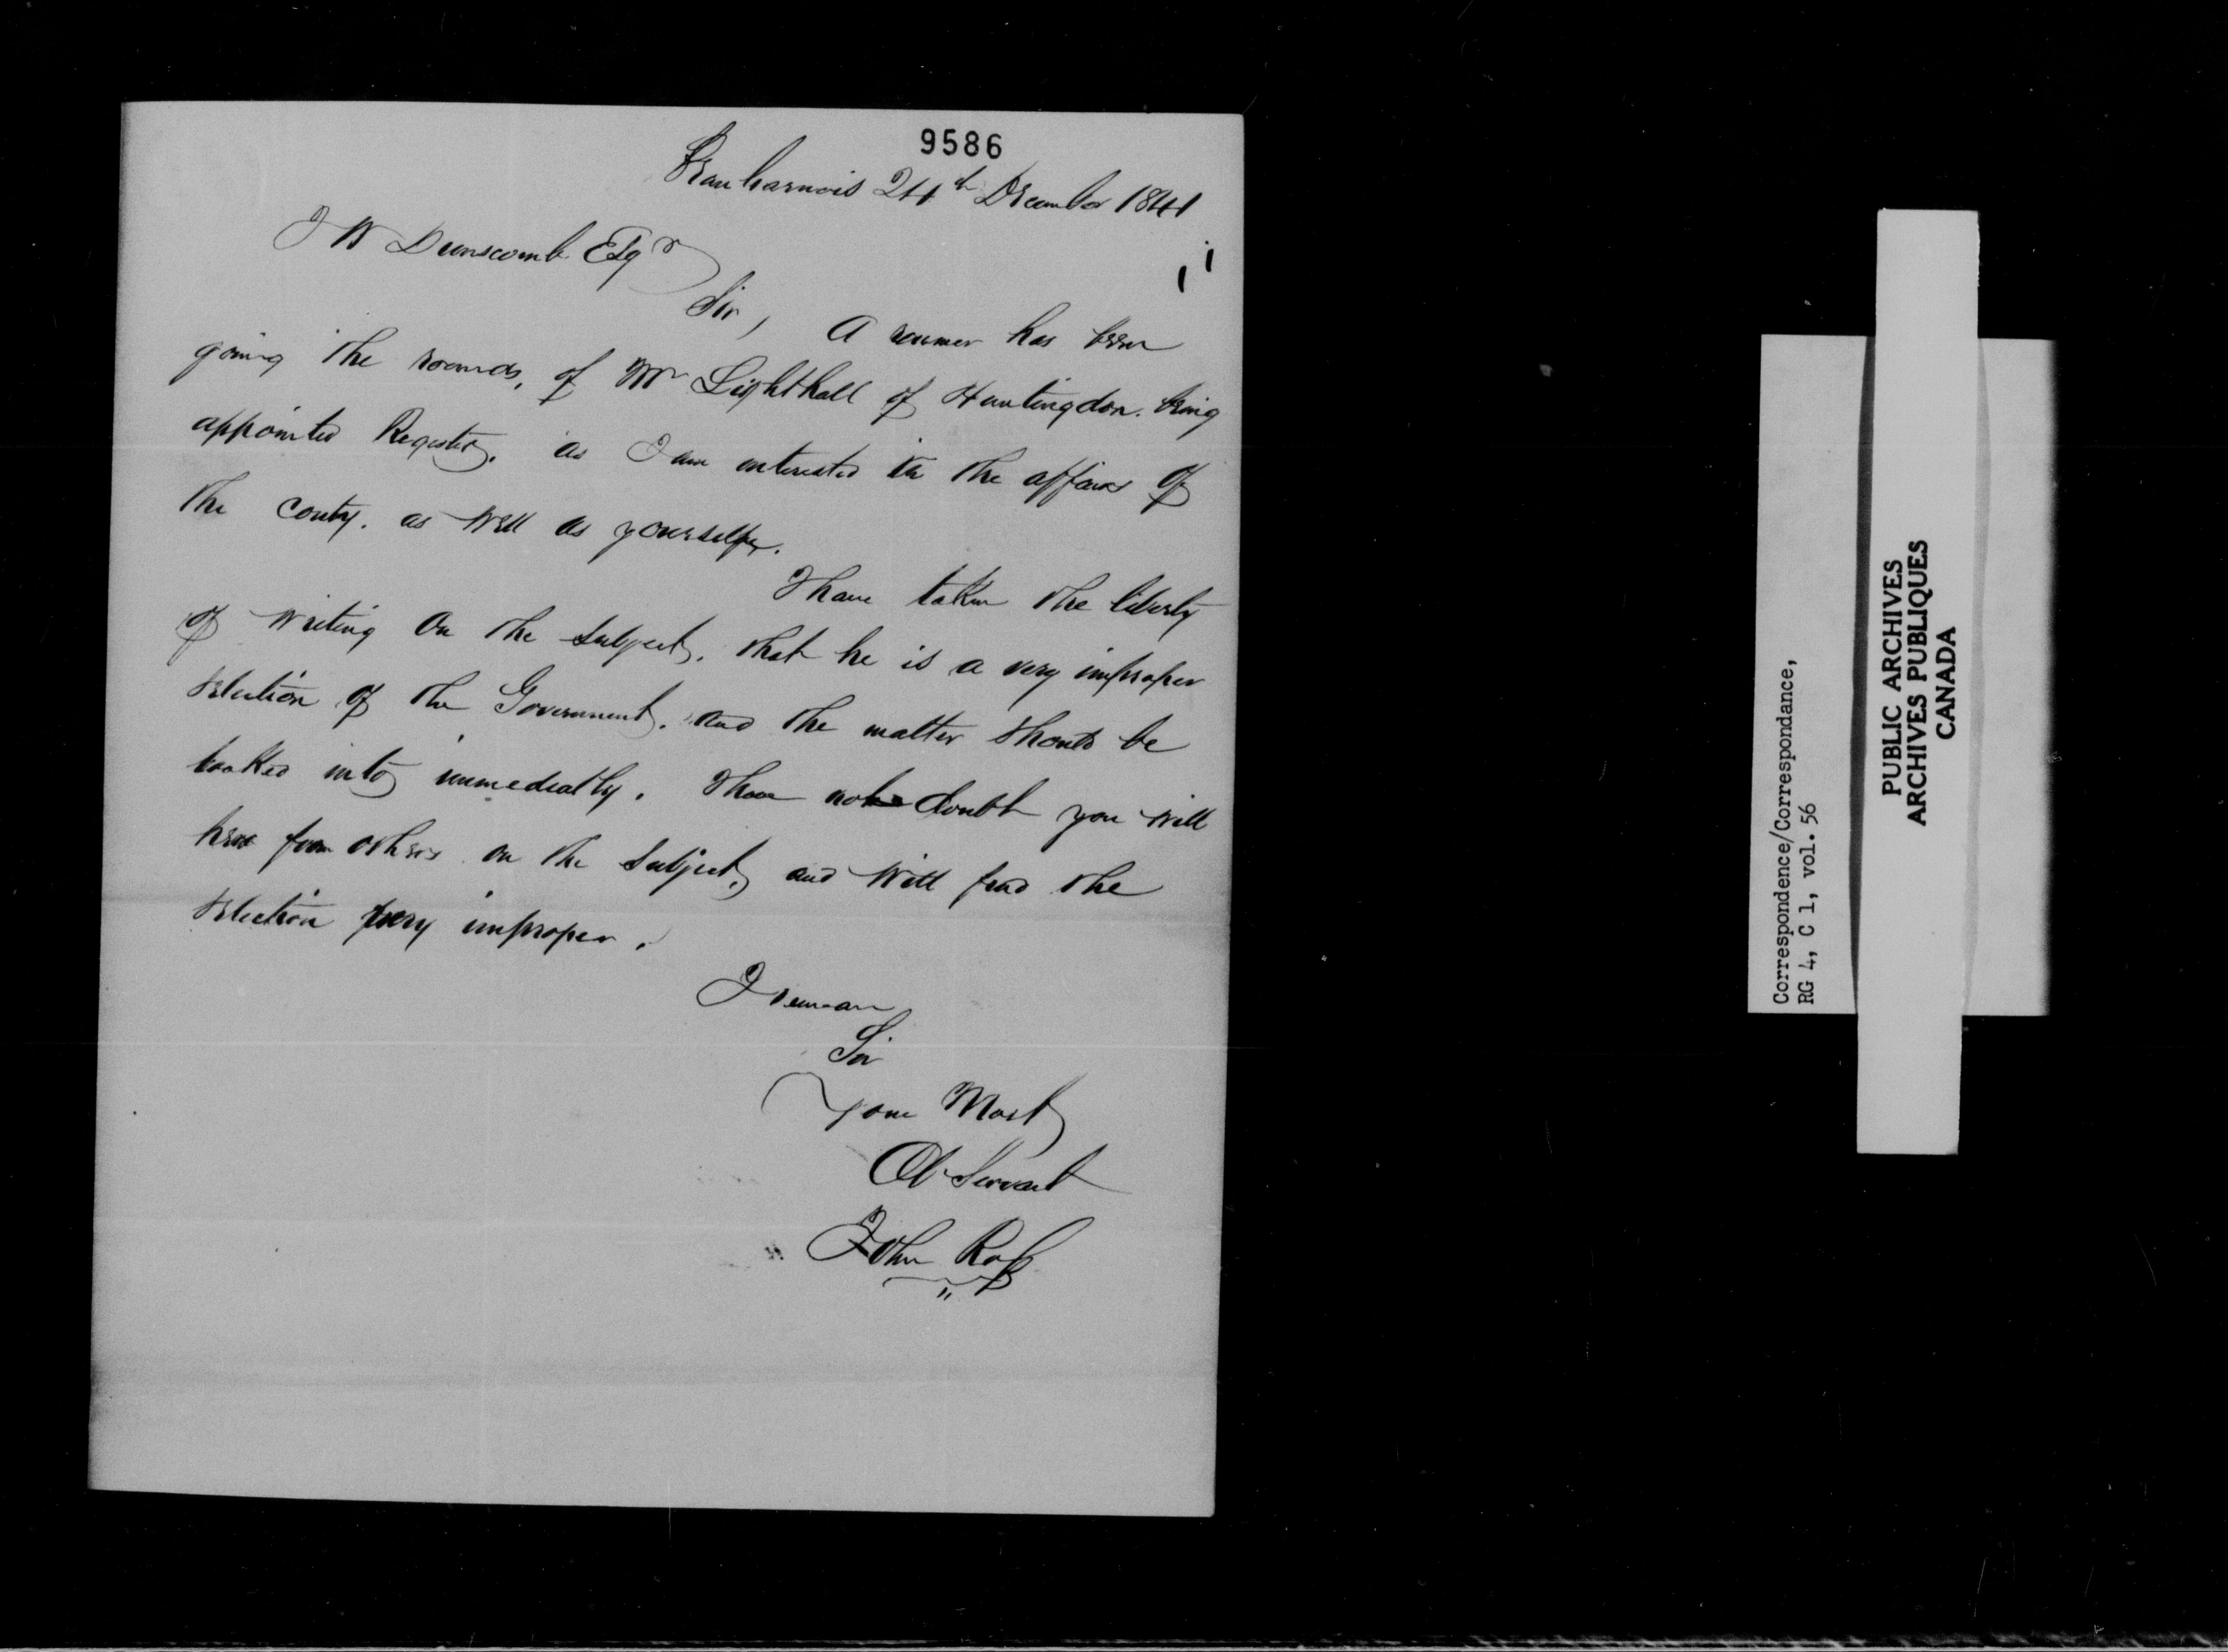 9586
Beauharnois 24th December 1841
J W Dunscomb Esqr
Sir, A rumer has been
going the rounds, of Mr Lighthall of Huntingdon. being
appointed Register. as I am interested in the affairs of
the county. as well as yourselfe.
I have taken the liberty
of writing on the subject. that he is a very improper
selection of the Government. and the matter should be
looked into immediatly. I have no doubt you will
hear from others on the subject, and will find the
selection very improper.
I remain
Sir
your Most
Ob Servant
John Ross
Correspondence/Correspondance,
RG 4, C 1, vol. 56
PUBLIC ARCHIVES
ARCHIVES PUBLIQUES
CANADA